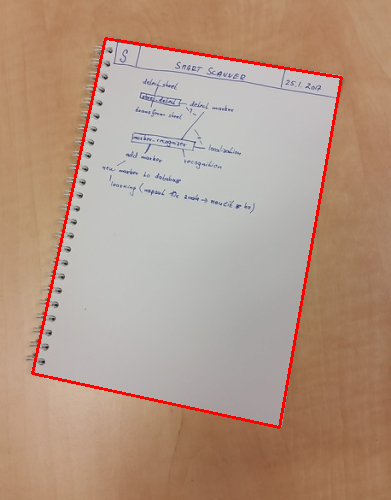 S SMART SCANNER 25.1.2017
detail sheel
sheel detect
detect marker
transform sheel
marker recognize
localization
add marker
recognition
new marker to database
learning (repeat